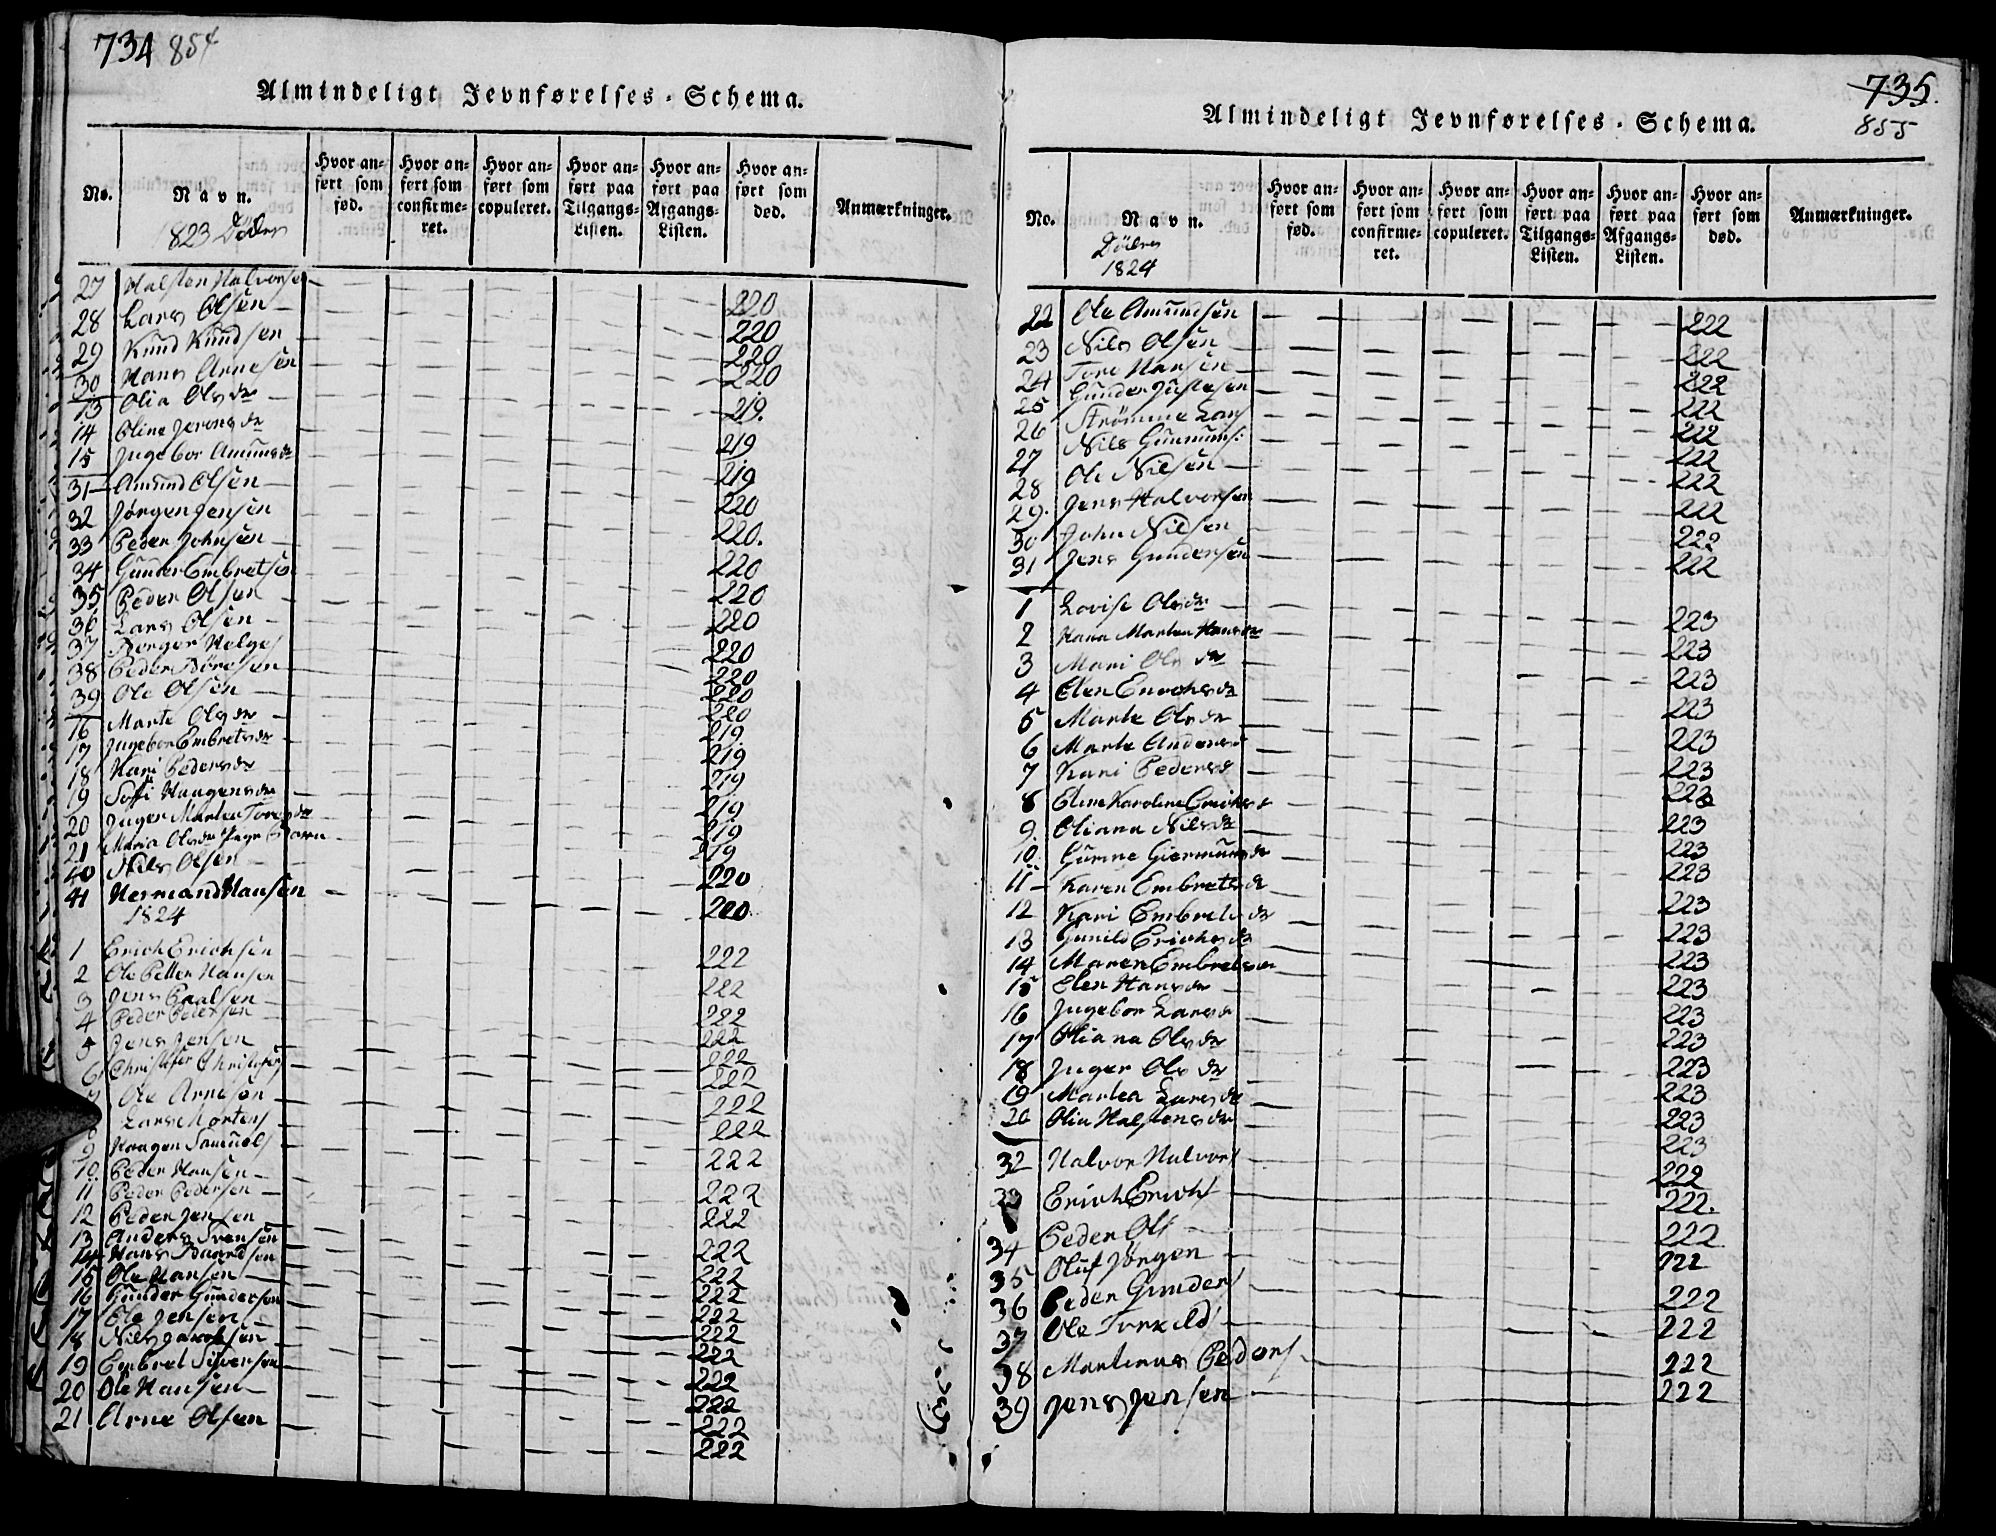 734 854
Almindeligt Jevnførelses-Schema.
No.
Navn.
1823 Döder
Hvor anført som fød.
Hvor anført som confirmeret.
Hvor anført som copuleret.
Hvor anført paa Tilgangs-Listen.
Hvor anført paa Afgangs-Listen.
Hvor anført som død.
Anmærkninger.
27 Halsten Halvorsen 220
28 Lars Olsen 220
29 Knud Knudsen 220
30 Hans Arnesen 220
13 Olia Olsdr 219.
14 Oline Jensdr 219
15 Ingebor Amundsdr 219
31 Amund Olsen 220
32 Jørgen Jensen 220.
33 Peder Johnsen 220
34 Gunder Embretsen 220
35 Peder Olsen 220
36 Lars Olsen 220
37 Berger Helges 220
38 Peder Böresen 220
39 Ole Olsen 220
16 Marte Olsdr 219
17 Ingebor Embretsdr 219
18 Kari Pedersdr 219
19 Soffi Haagensdr 219
20 Inger Martea Toresdr 219
21 Maria Olsdr 219
40 Nils Olsen 220
41 Hermand Hansen 220
1824
1 Erich Erichsen 222
2 Ole Petter Hansen 222
3 Jens Paalsen 222
4 Peder Pedersen 222
5 Jens Jensen 222
6 Christofer Christofers 222
7 Ole Arnesen 222
8 Lars Mortens 222
9 Haagen Samuels 222
10. Peder Hansen 222
11 Peder Pedersen 222
12 Peder Jensen 222
13 Anders Svensen 222
14 Hans Baardsen 222
15 Ole Hansen 222
16 Gunder Gundersen 222
17 Ole Jensen 222
18 Nils Jacobsen 222
19 Embret Siversen 222
20 Ole Hansen 222
21 Arne Olsen 222
735.
855
Almindeligt Jevnførelses-Schema.
No.
Navn.
Döder
1824
Hvor anført som fød.
Hvor anført som confirmeret.
Hvor anført som copuleret.
Hvor anført paa Tilgangs-Listen.
Hvor anført paa Afgangs-Listen.
Hvor anført som død.
Anmærkninger.
22 Ole Amundsen 222
23 Nils Olsen 222
24 Tore Hansen 222
25 Gunder Justesen 222
26 Strömme Lars 222
27 Nils Gunnums: 222
28 Ole Nilsen 222
29. Jens Halvorsen 222
30 John Nilsen 222
31 Jens Gundersen 222
1 Lovise Olsdr 223
2 Hana Martea Hansdr 223
3 Mari Olsdr 223
4 Elen Enochsdr 223
5 Marte Olsdr 223
6 Marte Andersd 223
7 Kari Pedersd 223
8 Eline Karoline Erichsdr 223
9. Oliana Nilsdr 223
10. Gunne Giermundsdr 223
11 Karen Embretsdr 223
12 Kari Embretsdr 223
13 Gunild Erichsdr 223
14 Maren Embretsdr 223
15 Elen Hansdr 223
16 Ingebor Larsd 223
17 Oliana Olsdr 223
18 Inger Olsdr 223
19 Martea Larsdr 223
20 Olia Halstensdr 223
32 Halvor Halvors 222
33 Erich Erichs 222.
34 Peder Ols 222
35 Oluf Jørgen 222
36 Peder Gunders 222
37 Ole Torkild 222
38 Martinus Peders 222
39 Jens Jensen 222